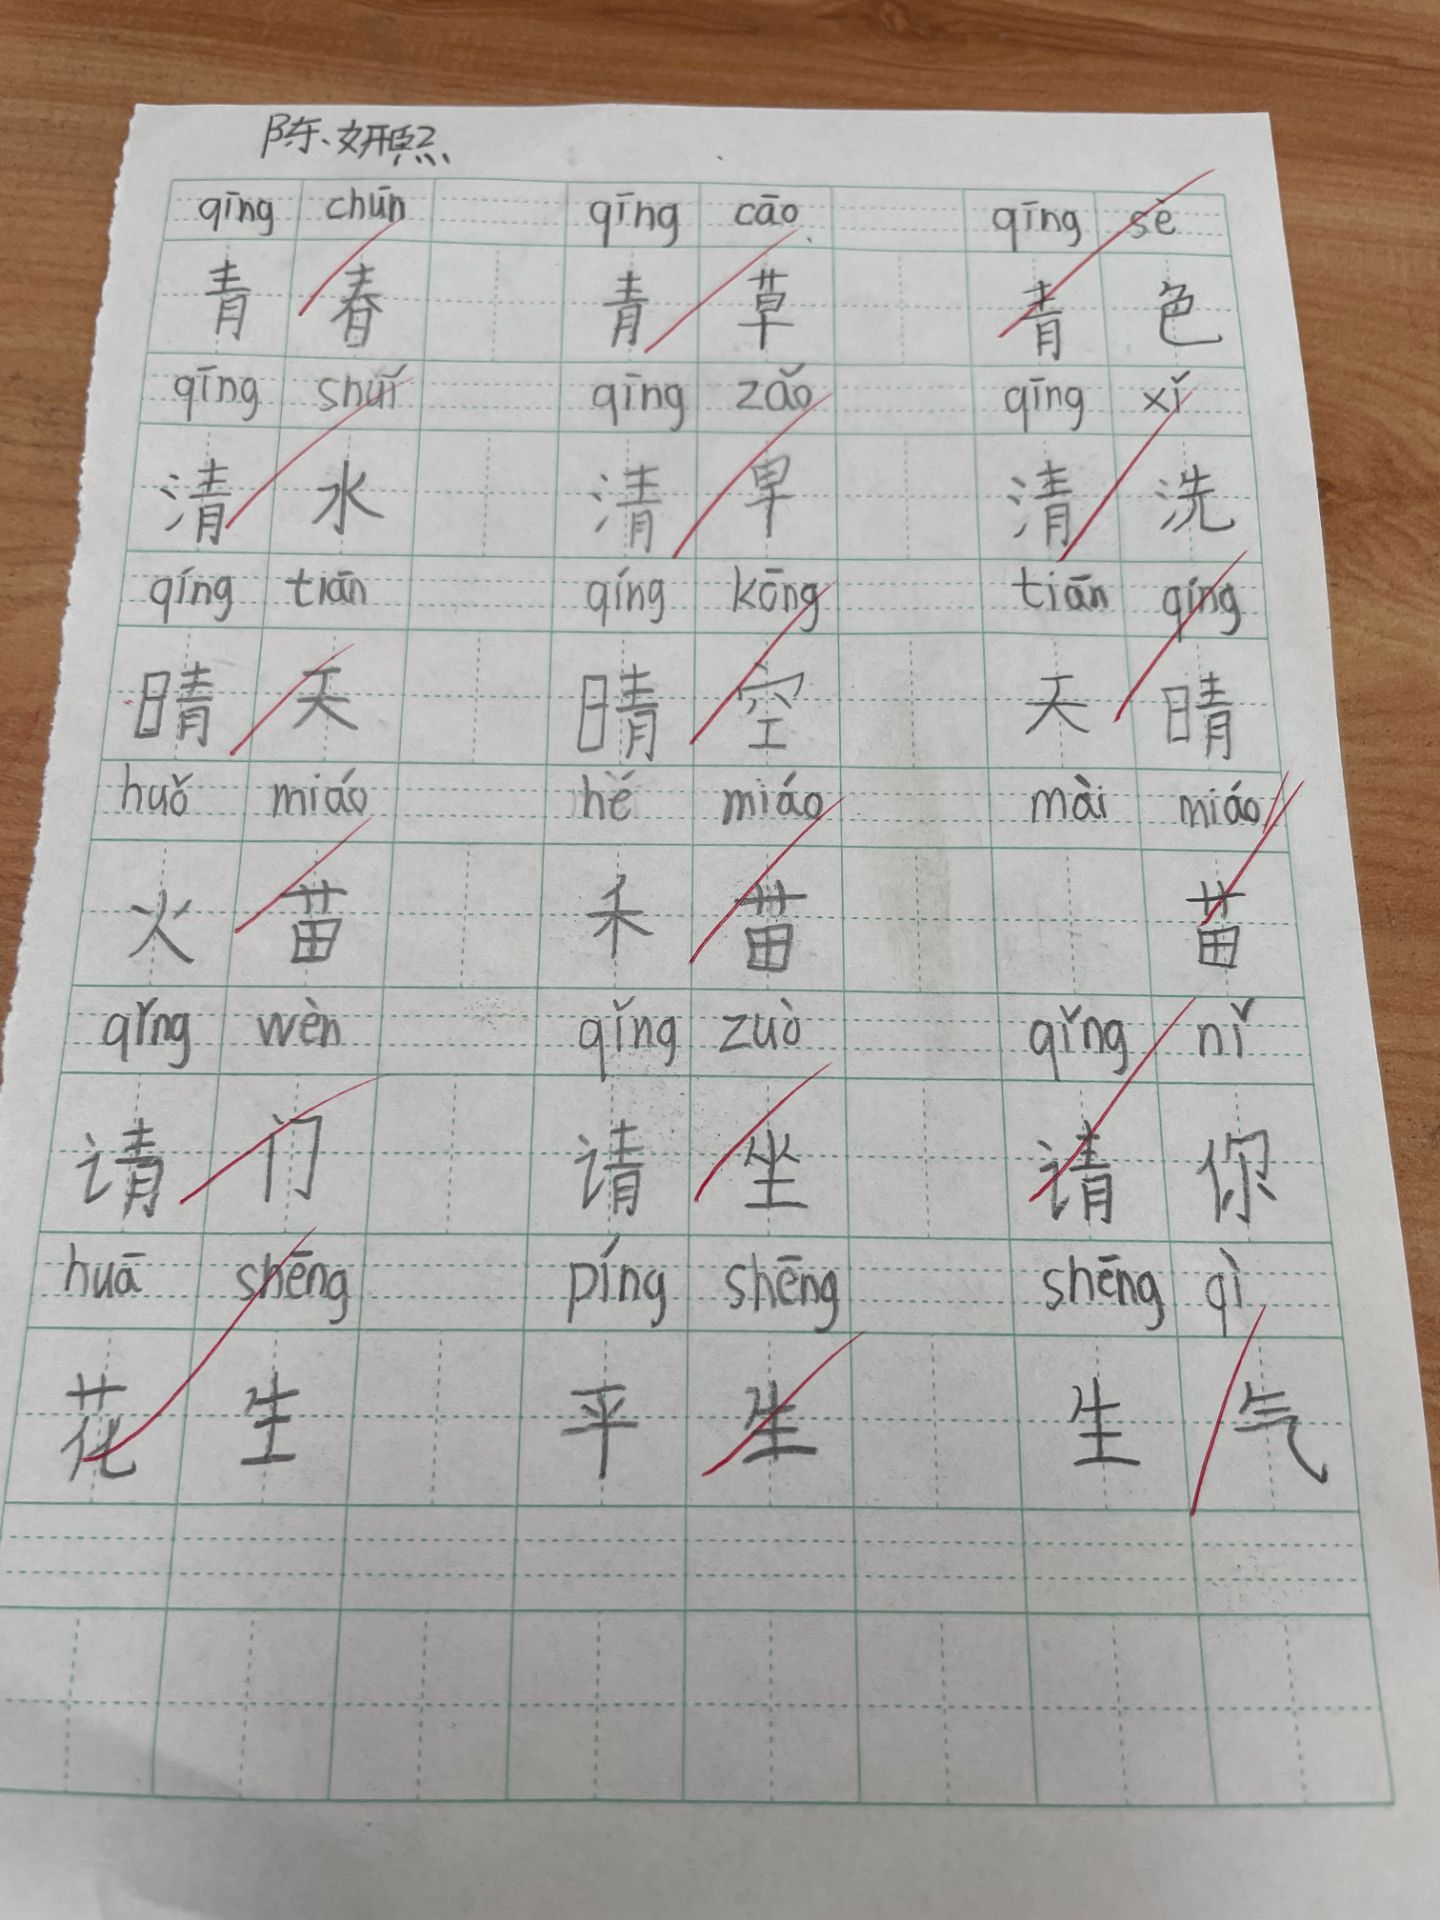 陈妍熙
qīng chūn qīng cāo qīng sè
青春 青草 青色
qīng shuǐ qīng zǎo qīng xǐ
清水 清早 清洗
qíng tiān qíng kōng tiān qíng
晴天 晴空 天晴
huǒ miáo hé miáo mài miáo
火苗 禾苗 苗
qǐng wèn qǐng zuò qǐng nǐ
请门 请坐 请你
huā shēng píng shēng shēng qì
花生 平生 生气